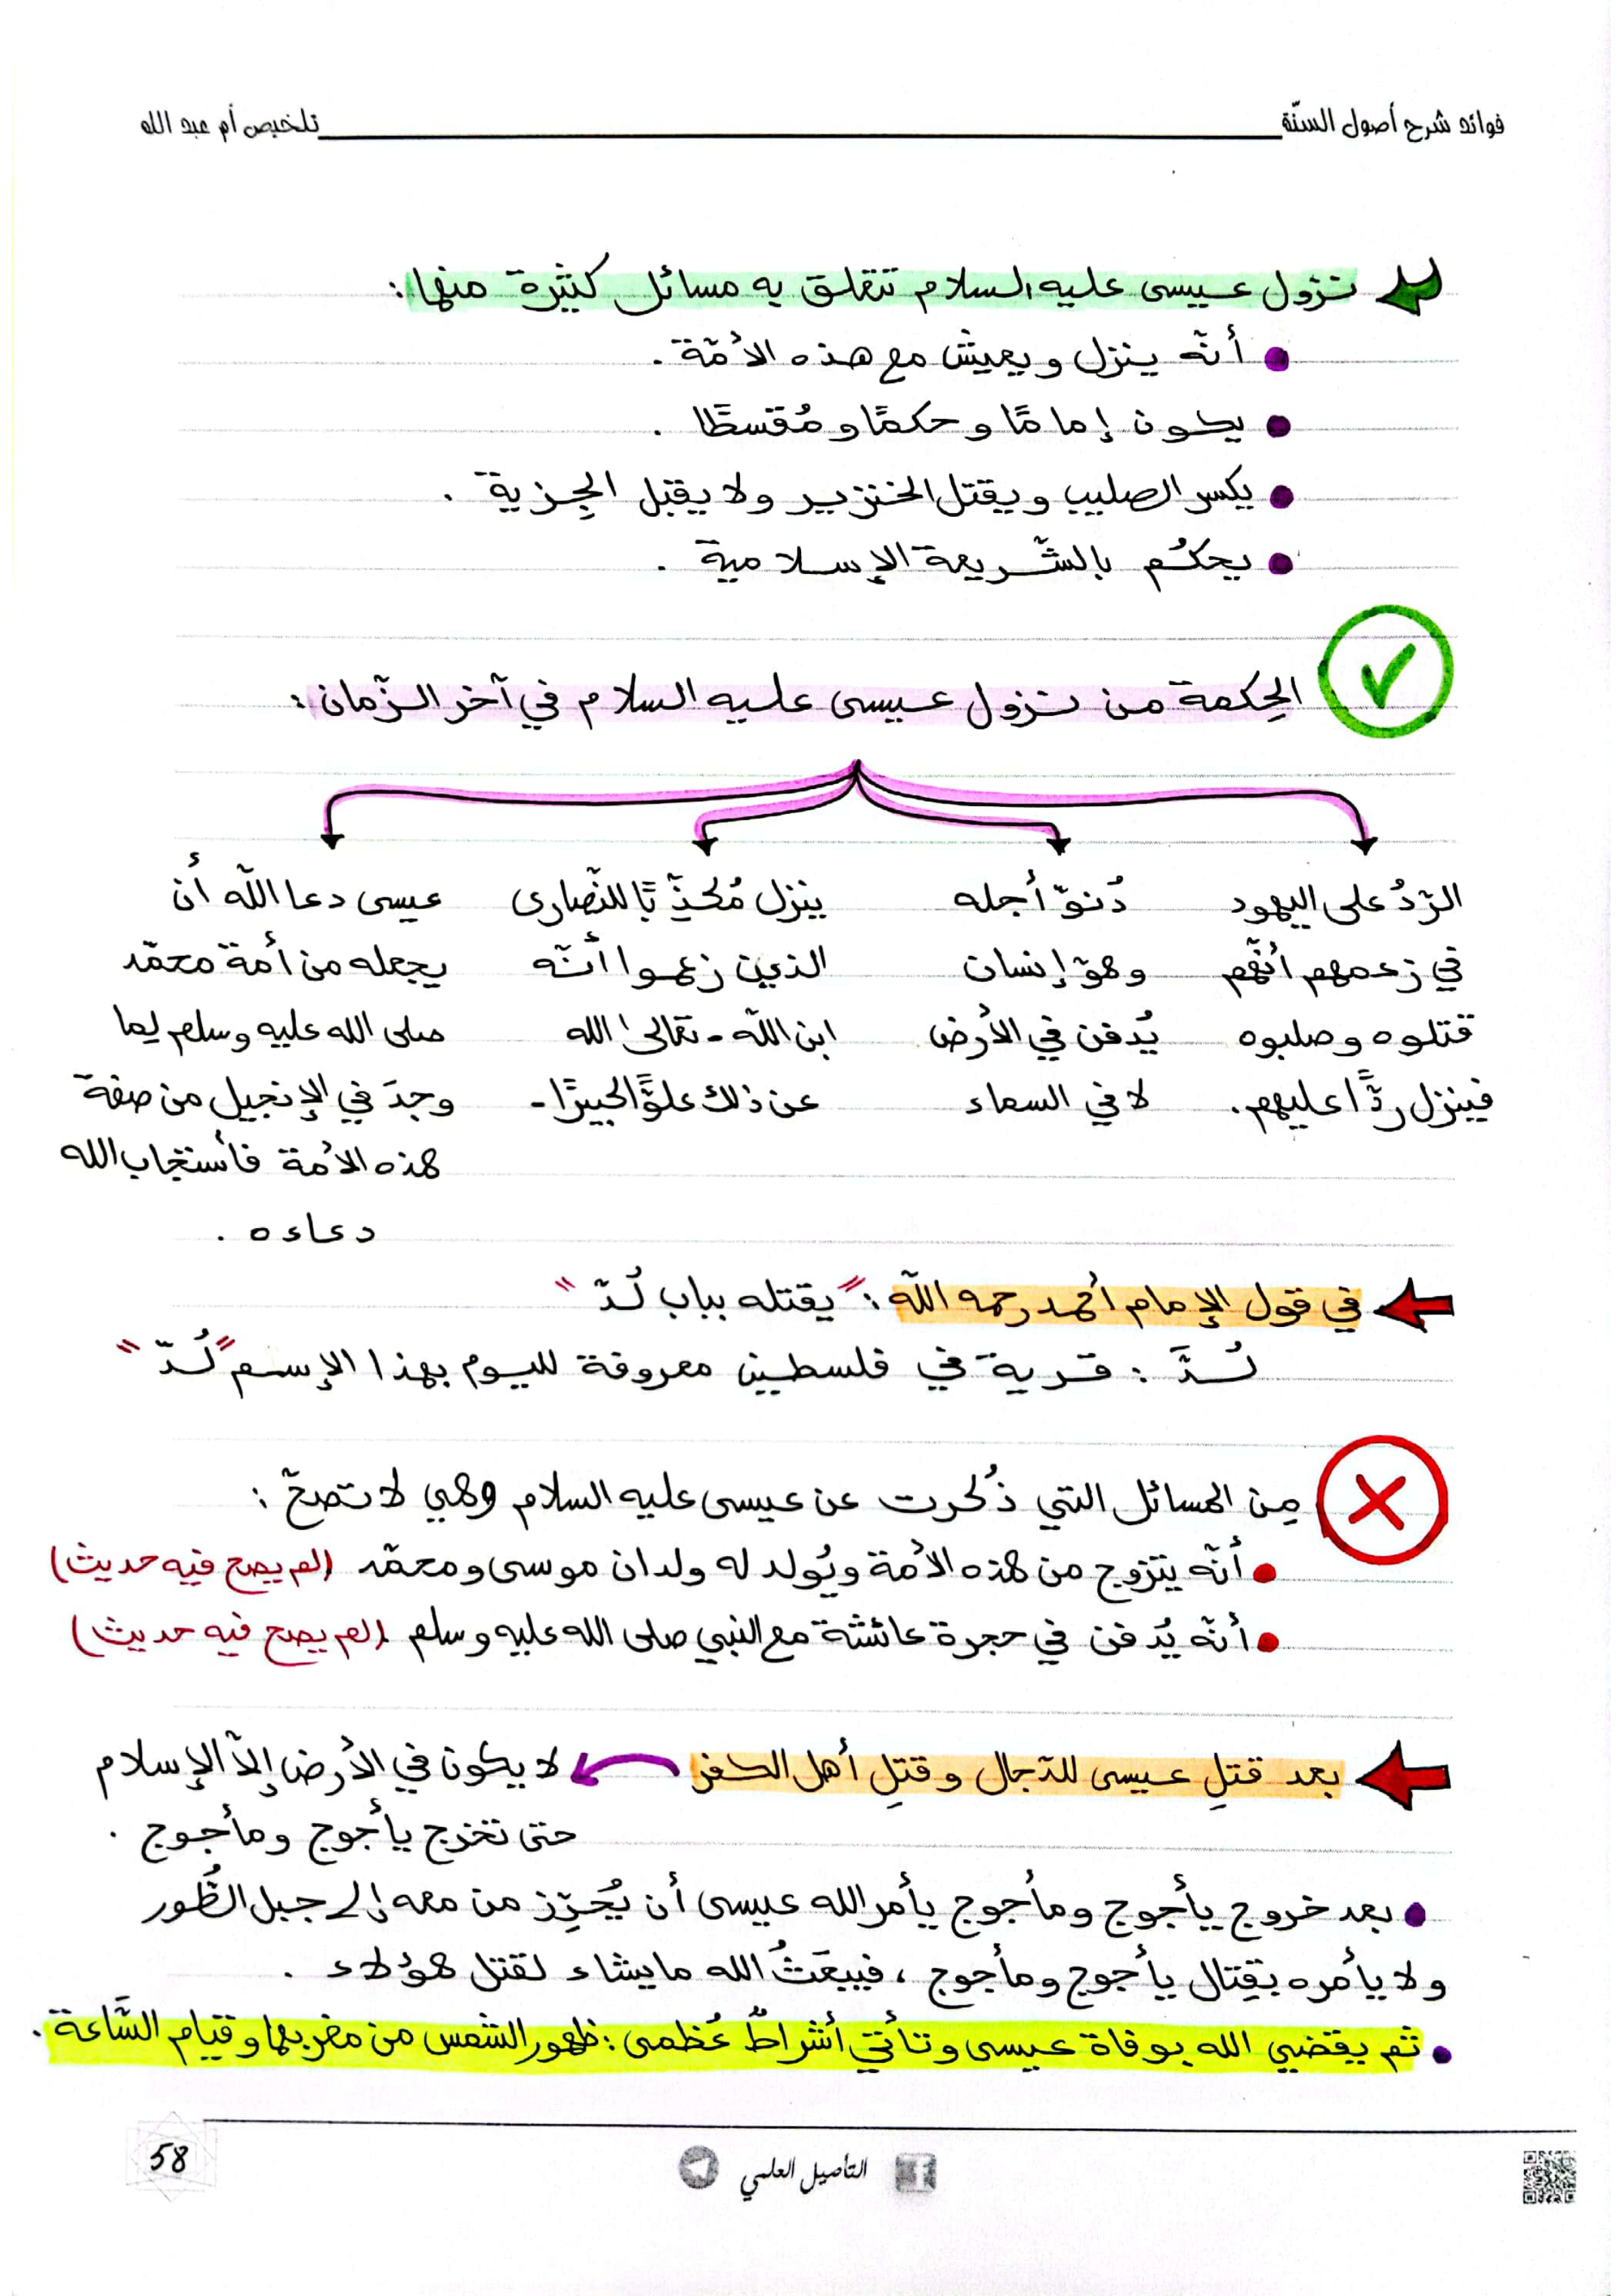 فوائد شرح أصول السنّة
تلخيص أم عبد الله
نزول عيسى عليه السلام تتعلق به مسائل كثيرة منها:
أنّه ينزل ويعيش مع هذه الأمّة.
يكون إمامًا وحكمًا ومُقسطًا.
يكسر الصليب ويقتل الخنزير ولا يقبل الجِزية.
يحكُم بالشّريعة الإسلامية.
الحِكمة من نزول عيسى عليه السلام في آخر الزّمان:
الرّدُ على اليهود
في زعمهم أنّهم
قتلوه وصلبوه
فينزل ردًّا عليهم.
دُنوّ أجله
وهوّ إنسان
يُدفن في الأرض
لا في السماء
ينزل مُكذِّبًا للنّصارى
الذين زعموا أنّه
ابن اللّه - تعالى الله
عن ذلك علوًّا كبيرًا -
عيسى دعا اللّه أن
يجعله من أمة محمّد
صلى الله عليه وسلم لِما
وجدَ في الإنجيل من صفة
هذه الأمة فأستجاب الله
دعاءه.
في قول الإمام أحمد رحمه اللّه: "يقتله بباب لُدّ"
لُدَّ: قرية في فلسطين معروفة لليوم بهذا الإسم "لُدّ"
مِن المسائل التي ذُكرت عن عيسى عليه السلام وهي لا تصحّ:
أنّه يتزوج من هذه الأمة ويُولد له ولدان موسى ومحمّد (لم يصح فيه حديث)
أنّه يُدفن في حجرة عائشة مع النبي صلى الله عليه وسلم. (لم يصح فيه حديث)
بعد قتلِ عيسى للدّجال وقتلِ أهل الكفر لا يكون في الأرض إلّا الإسلام
حتى تخرج يأجوج ومأجوج.
بعد خروج يأجوج ومأجوج يأمر الله عيسى أن يُحرِّز من معه إلى جبل الطُّور
ولا يأمره بقِتال يأجوج ومأجوج، فيبعَثُ الله ما يشاء لقتل هؤلاء.
ثم يقضي الله بوفاة عيسى وتأتي أشراطٌ عُظمى: ظهور الشمس من مغربها وقيام السَّاعة.
التأصيل العلمي
58